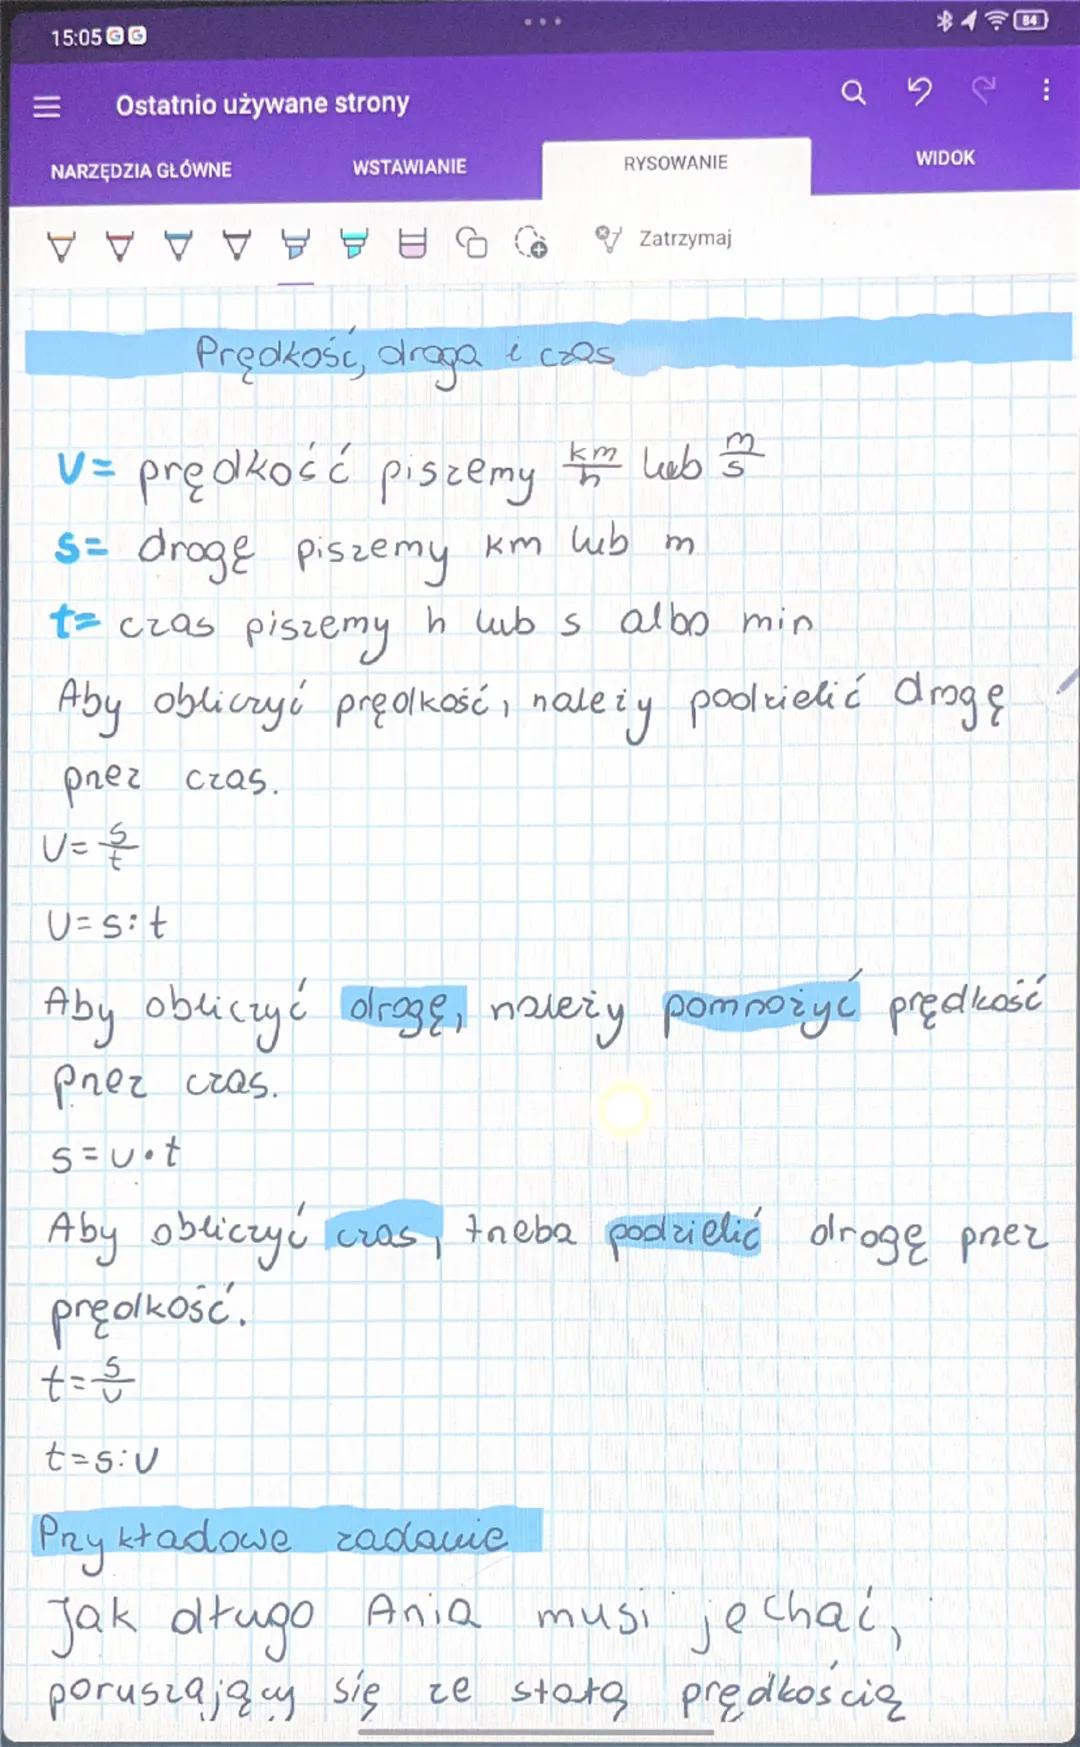 15:05
84
Ostatnio używane strony
NARZĘDZIA GŁÓWNE WSTAWIANIE RYSOWANIE WIDOK
Zatrzymaj
Prędkość, droga i czas
V= prędkość piszemy km/h lub m/s
s= drogę piszemy km lub m
t= czas piszemy h lub s albo min
Aby obliczyć prędkość, należy podzielić drogę
przez czas.
V= s/t
V=s:t
Aby obliczyć drogę, należy pomnożyć prędkość
przez czas.
s=v•t
Aby obliczyć czas, trzeba podzielić drogę przez
prędkość.
t= s/v
t=s:v
Przykładowe zadanie
Jak długo Ania musi jechać,
poruszającą się ze stałą prędkością